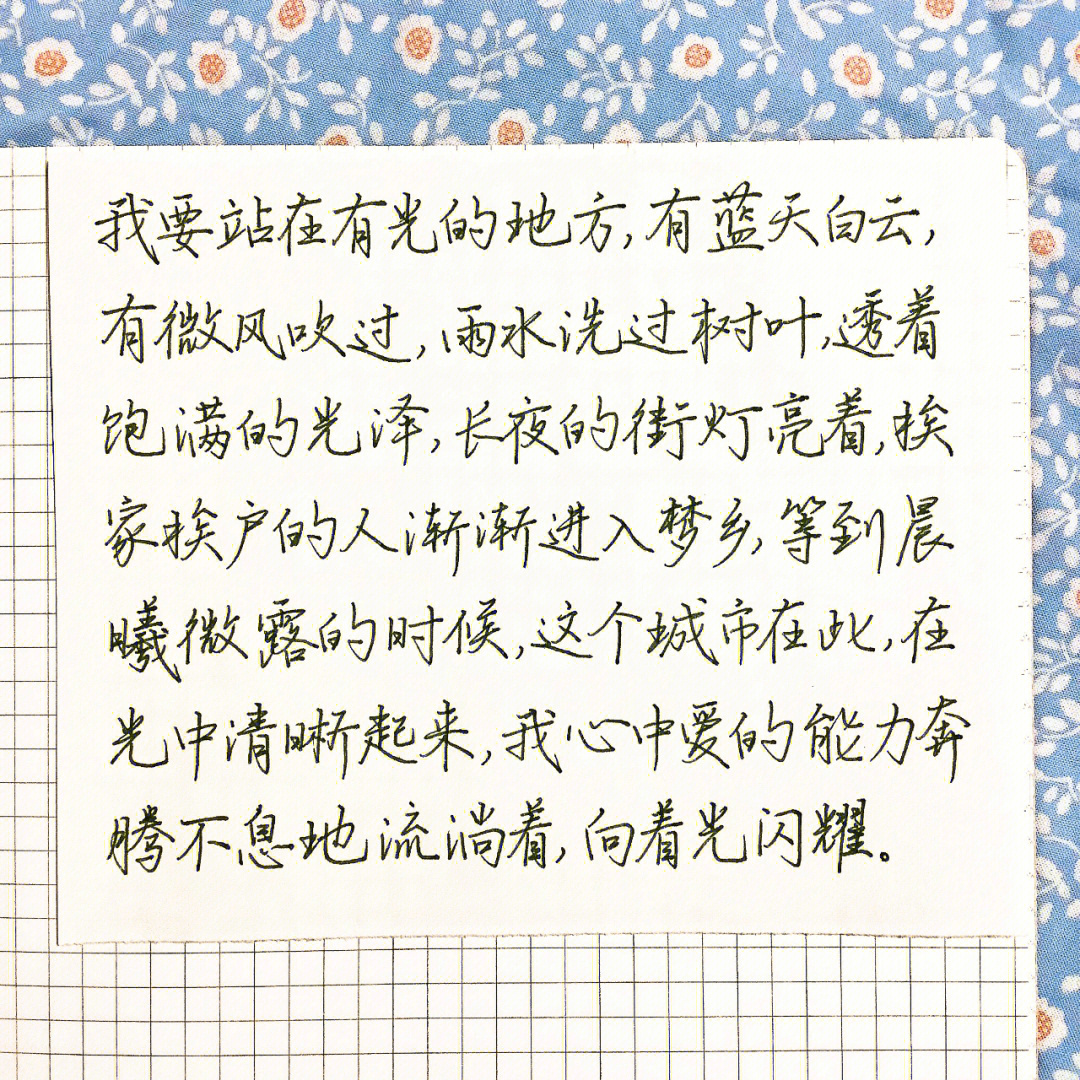 我要站在有光的地方,有蓝天白云,
有微风吹过,雨水洗过树叶,透着
饱满的光泽,长夜的街灯亮着,挨
家挨户的人渐渐进入梦乡,等到晨
曦微露的时候,这个城市在此,在
光中清晰起来,我心中爱的能力奔
腾不息地流淌着,向着光闪耀。